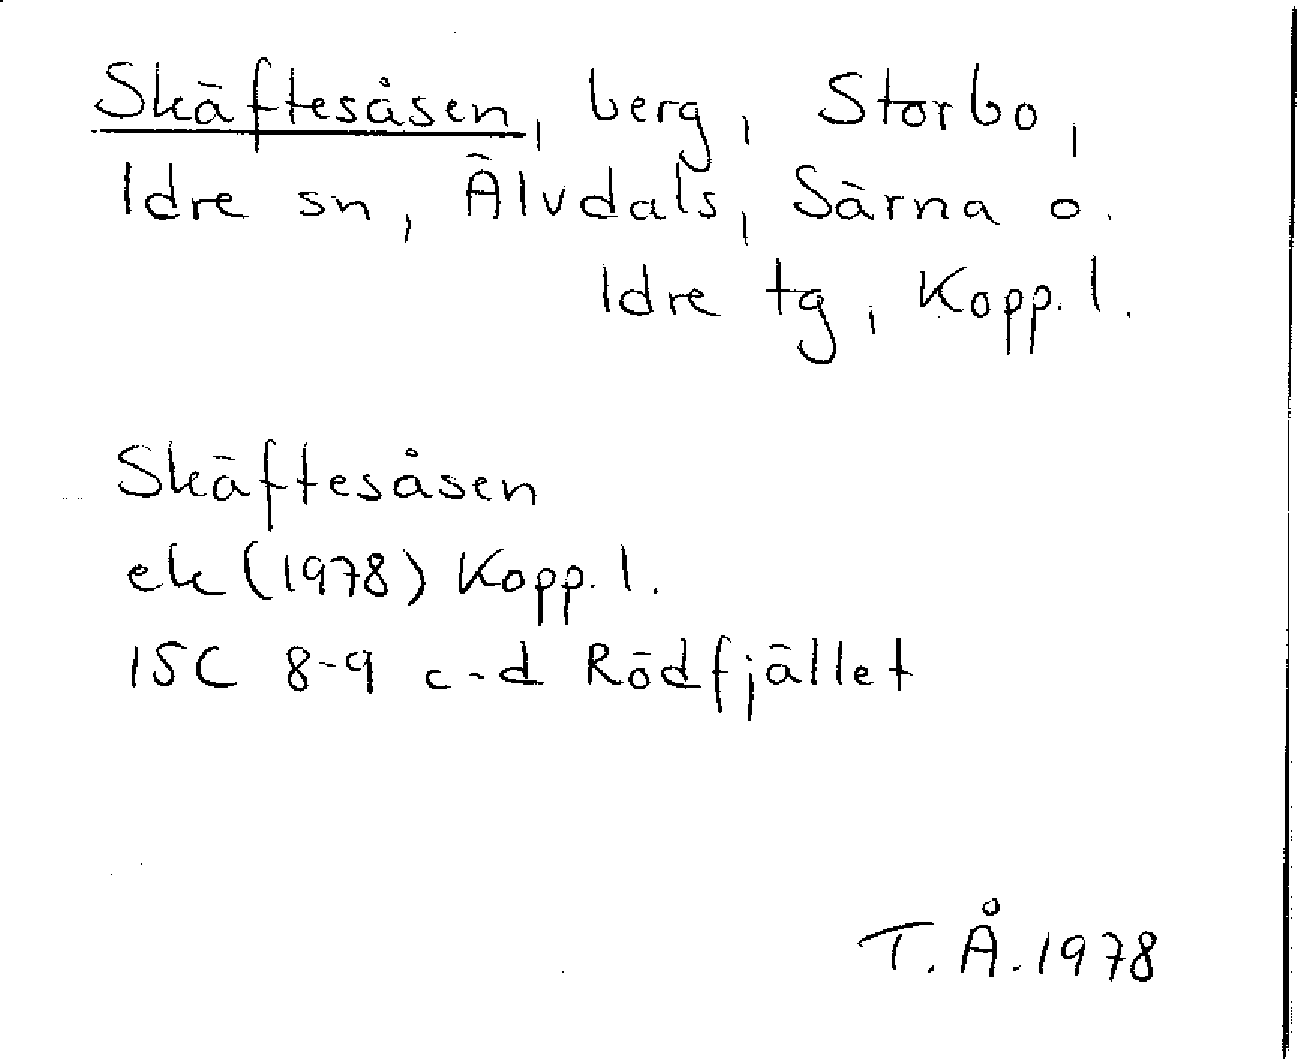 Skäftesåsen, berg, Storbo,
Idre sn, Älvdals, Särna o.
Idre tg, Kopp. l.
Skäftesåsen
ek (1978) Kopp. l.
15C 8-9 c-d Rödfjället
T. Å. 1978